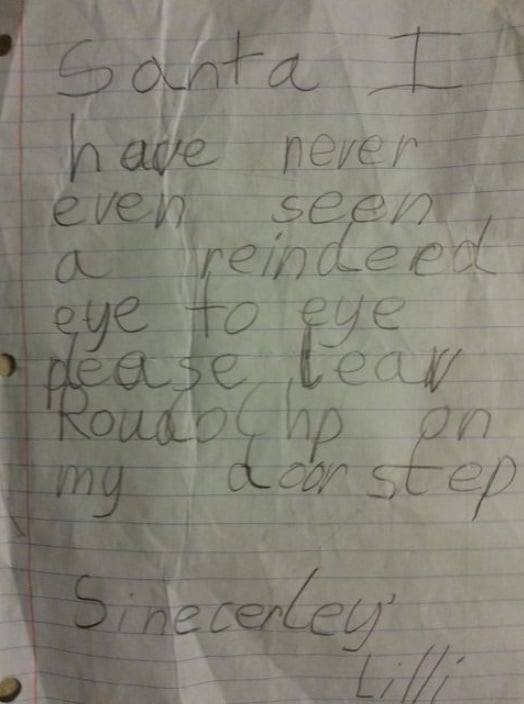 Santa I
have never
even seen
a reindeed
eye to eye
please leav
Roudolchp on
my doorstep
Sinecerley'
Lilli